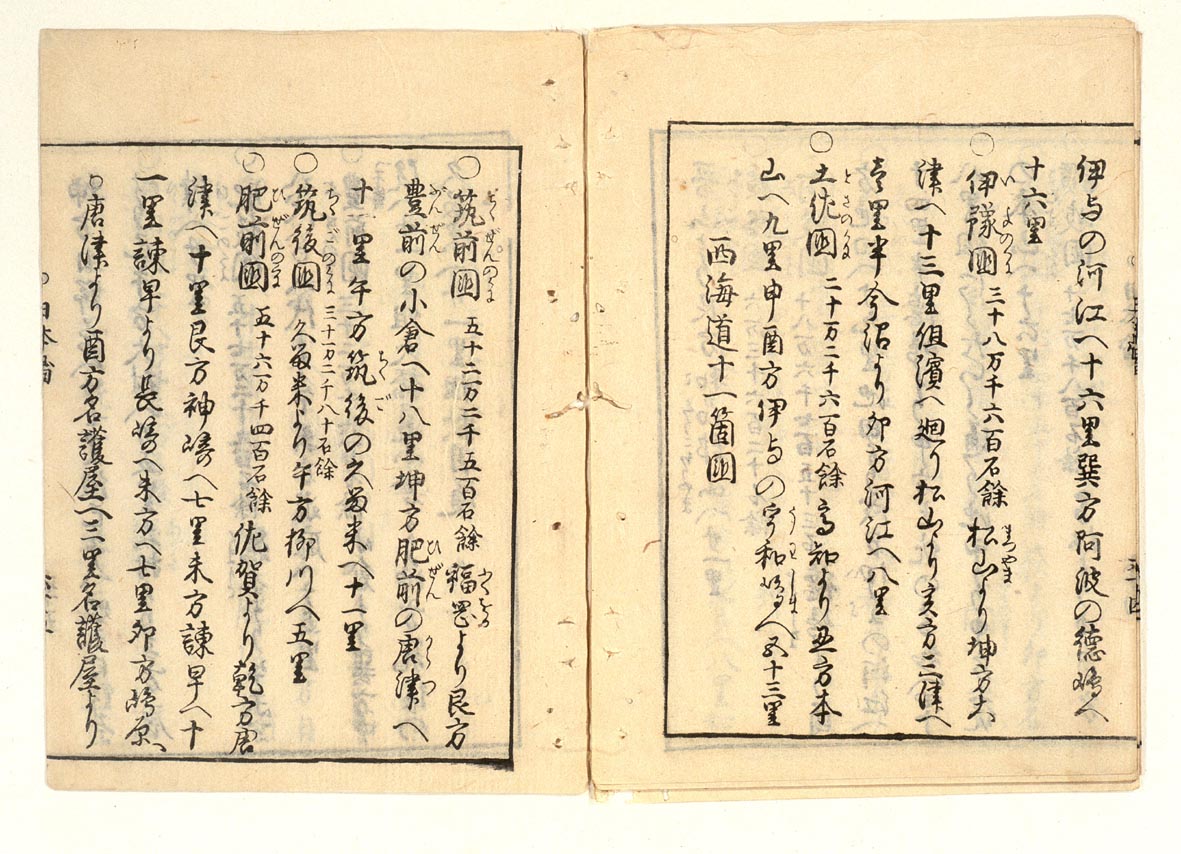 伊与の河江へ十六里巽方阿波の徳嶋へ
十六里
○伊豫國 いよのくに 三十八万千六百石餘 松山 まつやま より坤方大
津へ十三里但濱へ廻り松山より亥方三津へ
壱里半今治より卯方河江へ八里
○土佐國 とさのくに 二十万二千六百石餘 高知より丑方本
山へ九里申酉方伊与の宇和嶋 うわしま へ五十三里
西海道十一箇國
○筑前國 ちくぜんのくに 五十二万二千五百石餘 福岡 ふくをか より艮方
豊前 ぶんぜん の小倉へ十八里坤方肥前 ひぜん の唐津 からつ へ
十一里午方筑後 ちくご の久留米へ十一里
○筑後國 ちくごのくに 三十万二千八十石餘 久留米より午方柳川へ五里
○肥前國 ひぜんのくに 五十六万千四百石餘 佐賀より乾方唐
津へ十里艮方神嶋へ七里未方諫早へ十
一里諫早より長嶋へ未方へ七里卯方嶋原へ
○唐津より酉方名護屋へ三里名護屋より